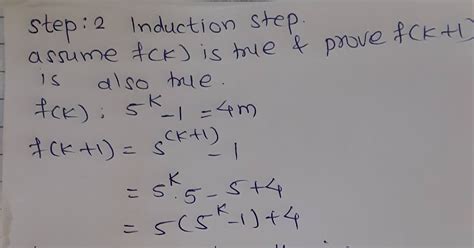 step:2 Induction step.
assume f(k) is true & prove f(k+1)
is also true.
f(k) : 5^k - 1 = 4m
f(k+1) = 5^(k+1) - 1
= 5^k . 5 - 5 + 4
= 5(5^k - 1) + 4